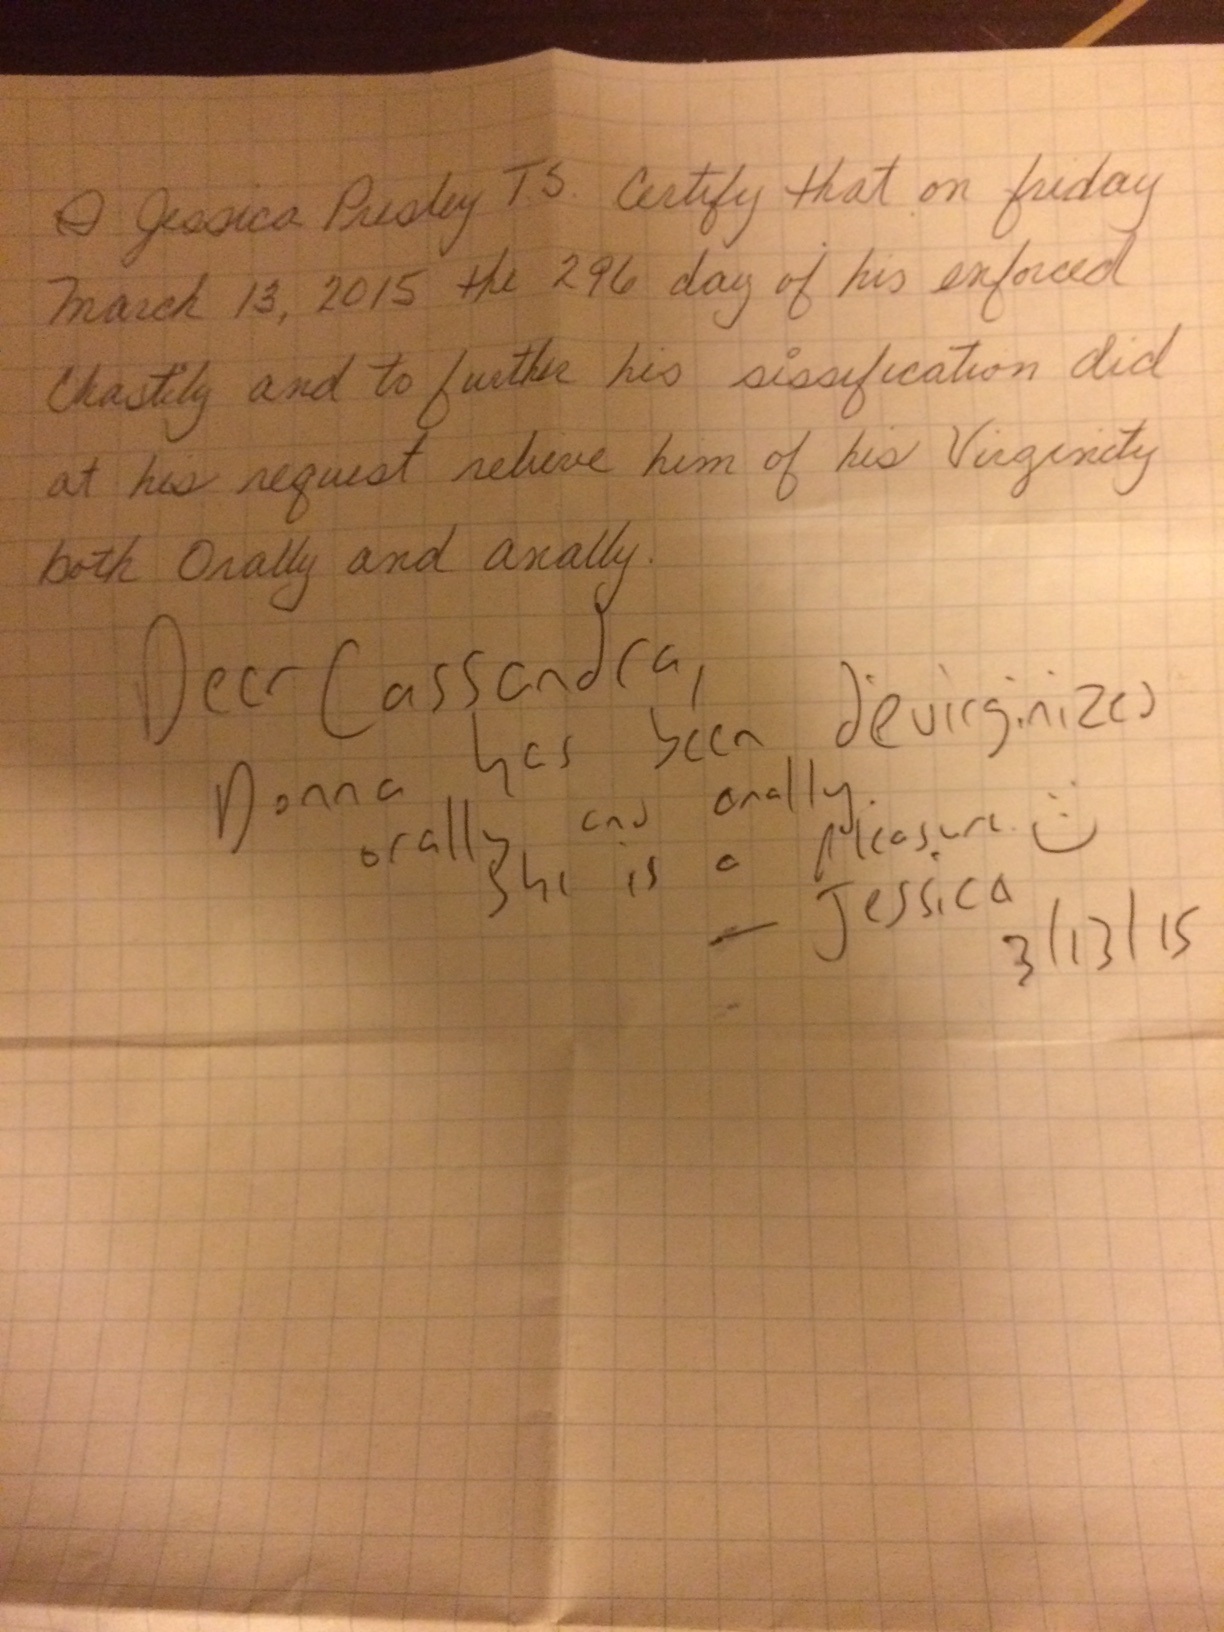 I Jessica Presley T.S. Certify that on friday
March 13, 2015 the 296 day of his enforced
Chastity and to further his sissification did
at his request relieve him of his Virginity
both Orally and anally.
Dear Cassandra,
Donna has been devirginized
orally and anally.
She is a pleasure. :)
— Jessica
3/13/15